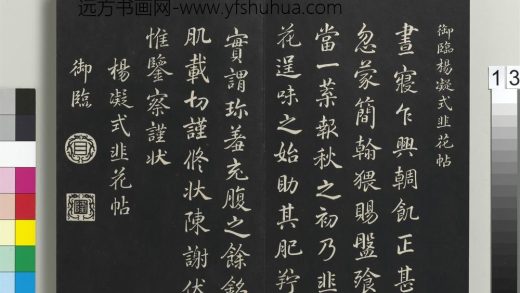 远方书画网-www.yfshuhua.com
御臨楊凝式韭花帖
晝寝乍興輖飢正甚
忽蒙簡翰猥賜盤飧
當一葉報秋之初乃韭
花逞味之始助其肥羜
實謂珍羞充腹之餘銘
肌載切謹修状陳謝伏
惟鑒察謹状
楊凝式韭花帖
御臨
13